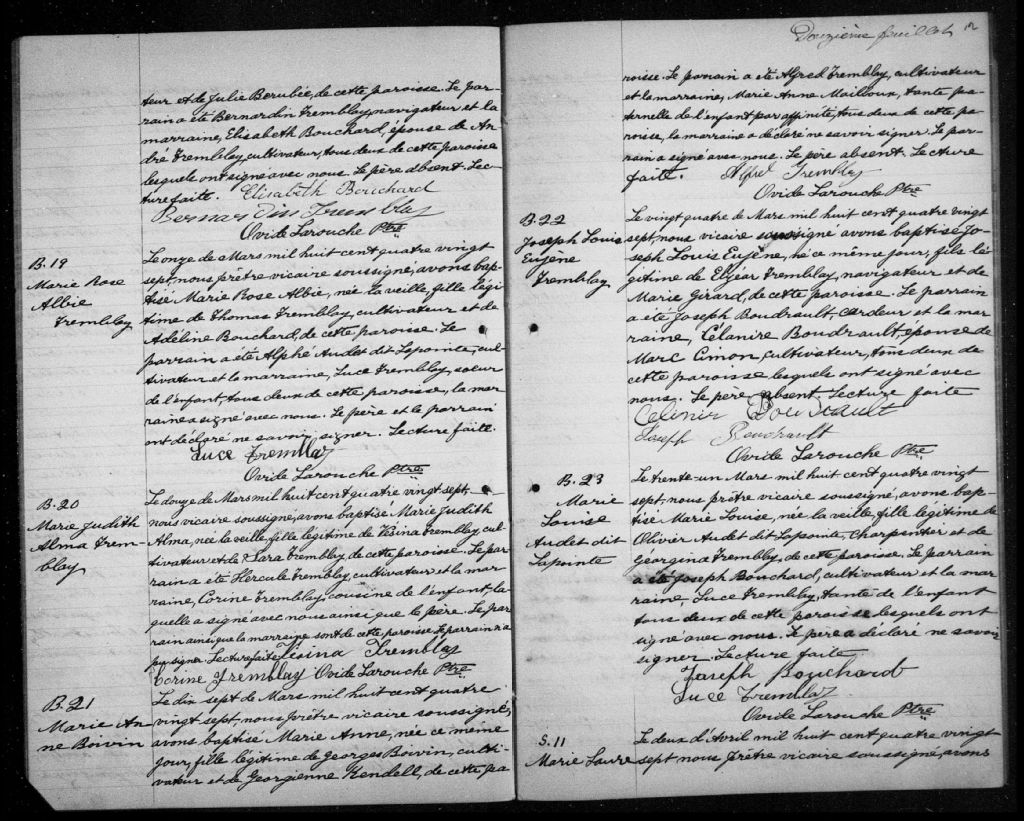 teur et de Julie Berubée, de cette paroisse. Le par-
rain a été Bernardin Tremblay, navigateur et la
marraine, Elisabeth Bouchard, épouse de An-
dré Tremblay, cultivateur, tous deux de cette paroisse
lesquels ont signé avec nous. Le père absent. Lec-
ture faite. Elisabeth Bouchard
Bernardin Tremblay
Ovide Larouche Ptre
B.19
Marie Rose
Albie
Tremblay
Le onze de Mars mil huit cent quatre vingt
sept, nous prêtre vicaire soussigné, avons bap-
tisé Marie Rose Albie, née la veille, fille légi-
time de Thomas Tremblay, cultivateur et de
Adéline Bouchard, de cette paroisse. Le
parrain a été Alphé Audet dit Lapointe, cul-
tivateur et la marraine, Luce Tremblay, soeur
de l'enfant, tous deux de cette paroisse, la mar
raine a signé avec nous. Le père et le parrain
ont déclaré ne savoir signer. Lecture faite.
Luce Tremblay
Ovide Larouche Ptre
B.20
Marie Judith
Alma Trem-
blay
Le douze de Mars mil huit cent quatre vingt sept,
nous vicaire soussigné, avons baptisé Marie Judith
Alma, née la veille, fille légitime de Vésina Tremblay, cul-
tivateur et de Sara Tremblay, de cette paroisse. Le par-
rain a été Hercule Tremblay, cultivateur et la mar
raine, Corine Tremblay, cousine de l'enfant, la-
quelle a signé avec nous ainsi que le père. Le par-
rain ainsi que la marraine sont de cette paroisse. Le parrain n'a
pu signer. Lecture faite Vésina Tremblay
Corine Tremblay Ovide Larouche Ptre
B.21
Marie An
ne Boivin
Le dix sept de Mars mil huit cent quatre
vingt sept, nous prêtre vicaire soussigné,
avons baptisé Marie Anne, née ce même
jour, fille légitime de Georges Boivin, culti-
vateur et de Georgienne Kendell, de cette pa
Douzième feuillet 12
roisse. Le parrain a été Alfred Tremblay, cultivateur
et la marraine, Marie Anne Mailloux, tante pa-
ternelle de l'enfant par affinité, tous deux de cette pa-
roisse, la marraine a déclaré ne savoir signer. Le par-
rain a signé avec nous. Le père absent. Lecture
faite. Alfred Tremblay
Ovide Larouche Ptre
B.22
Joseph Louis
Eugène
Tremblay.
Le vingt quatre de Mars mil huit cent quatre vingt
sept, nous vicaire soussigné avons baptisé Jo-
seph Louis Eugène, né ce même jour, fils lé-
gitime de Elzéar Tremblay, navigateur et de
Marie Girard, de cette paroisse. Le parrain
a été Joseph Boudrault, cardeur et la mar
raine, Célanire Boudrault, épouse de
Marc Cimon, cultivateur, tous deux de
cette paroisse lesquels ont signé avec
nous. Le père absent. Lecture faite
Celinir Boudrault
Joseph Bouchrault
Ovide Larouche Ptre
B.23
Marie
Louise
Audet dit
Lapointe
Le trente-un Mars mil huit cent quatre vingt
sept, nous prêtre vicaire soussigné, avons bap-
tisé Marie Louise, née la veille, fille légitime de
Olivier Audet dit Lapointe, charpentier et de
Géorgina Tremblay, de cette paroisse. Le parrain
a été Joseph Bouchard, cultivateur et la mar
raine, Luce Tremblay, tante de l'enfant
tous deux de cette paroisse lesquels ont
signé avec nous. Le père a déclaré ne savoir
signer. Lecture faite.
Joseph Bouchard
Luce Tremblay
Ovide Larouche Ptre
S.11
Marie Laure
Le deux d'Avril mil huit cent quatre vingt
sept nous prêtre vicaire soussigné, avons